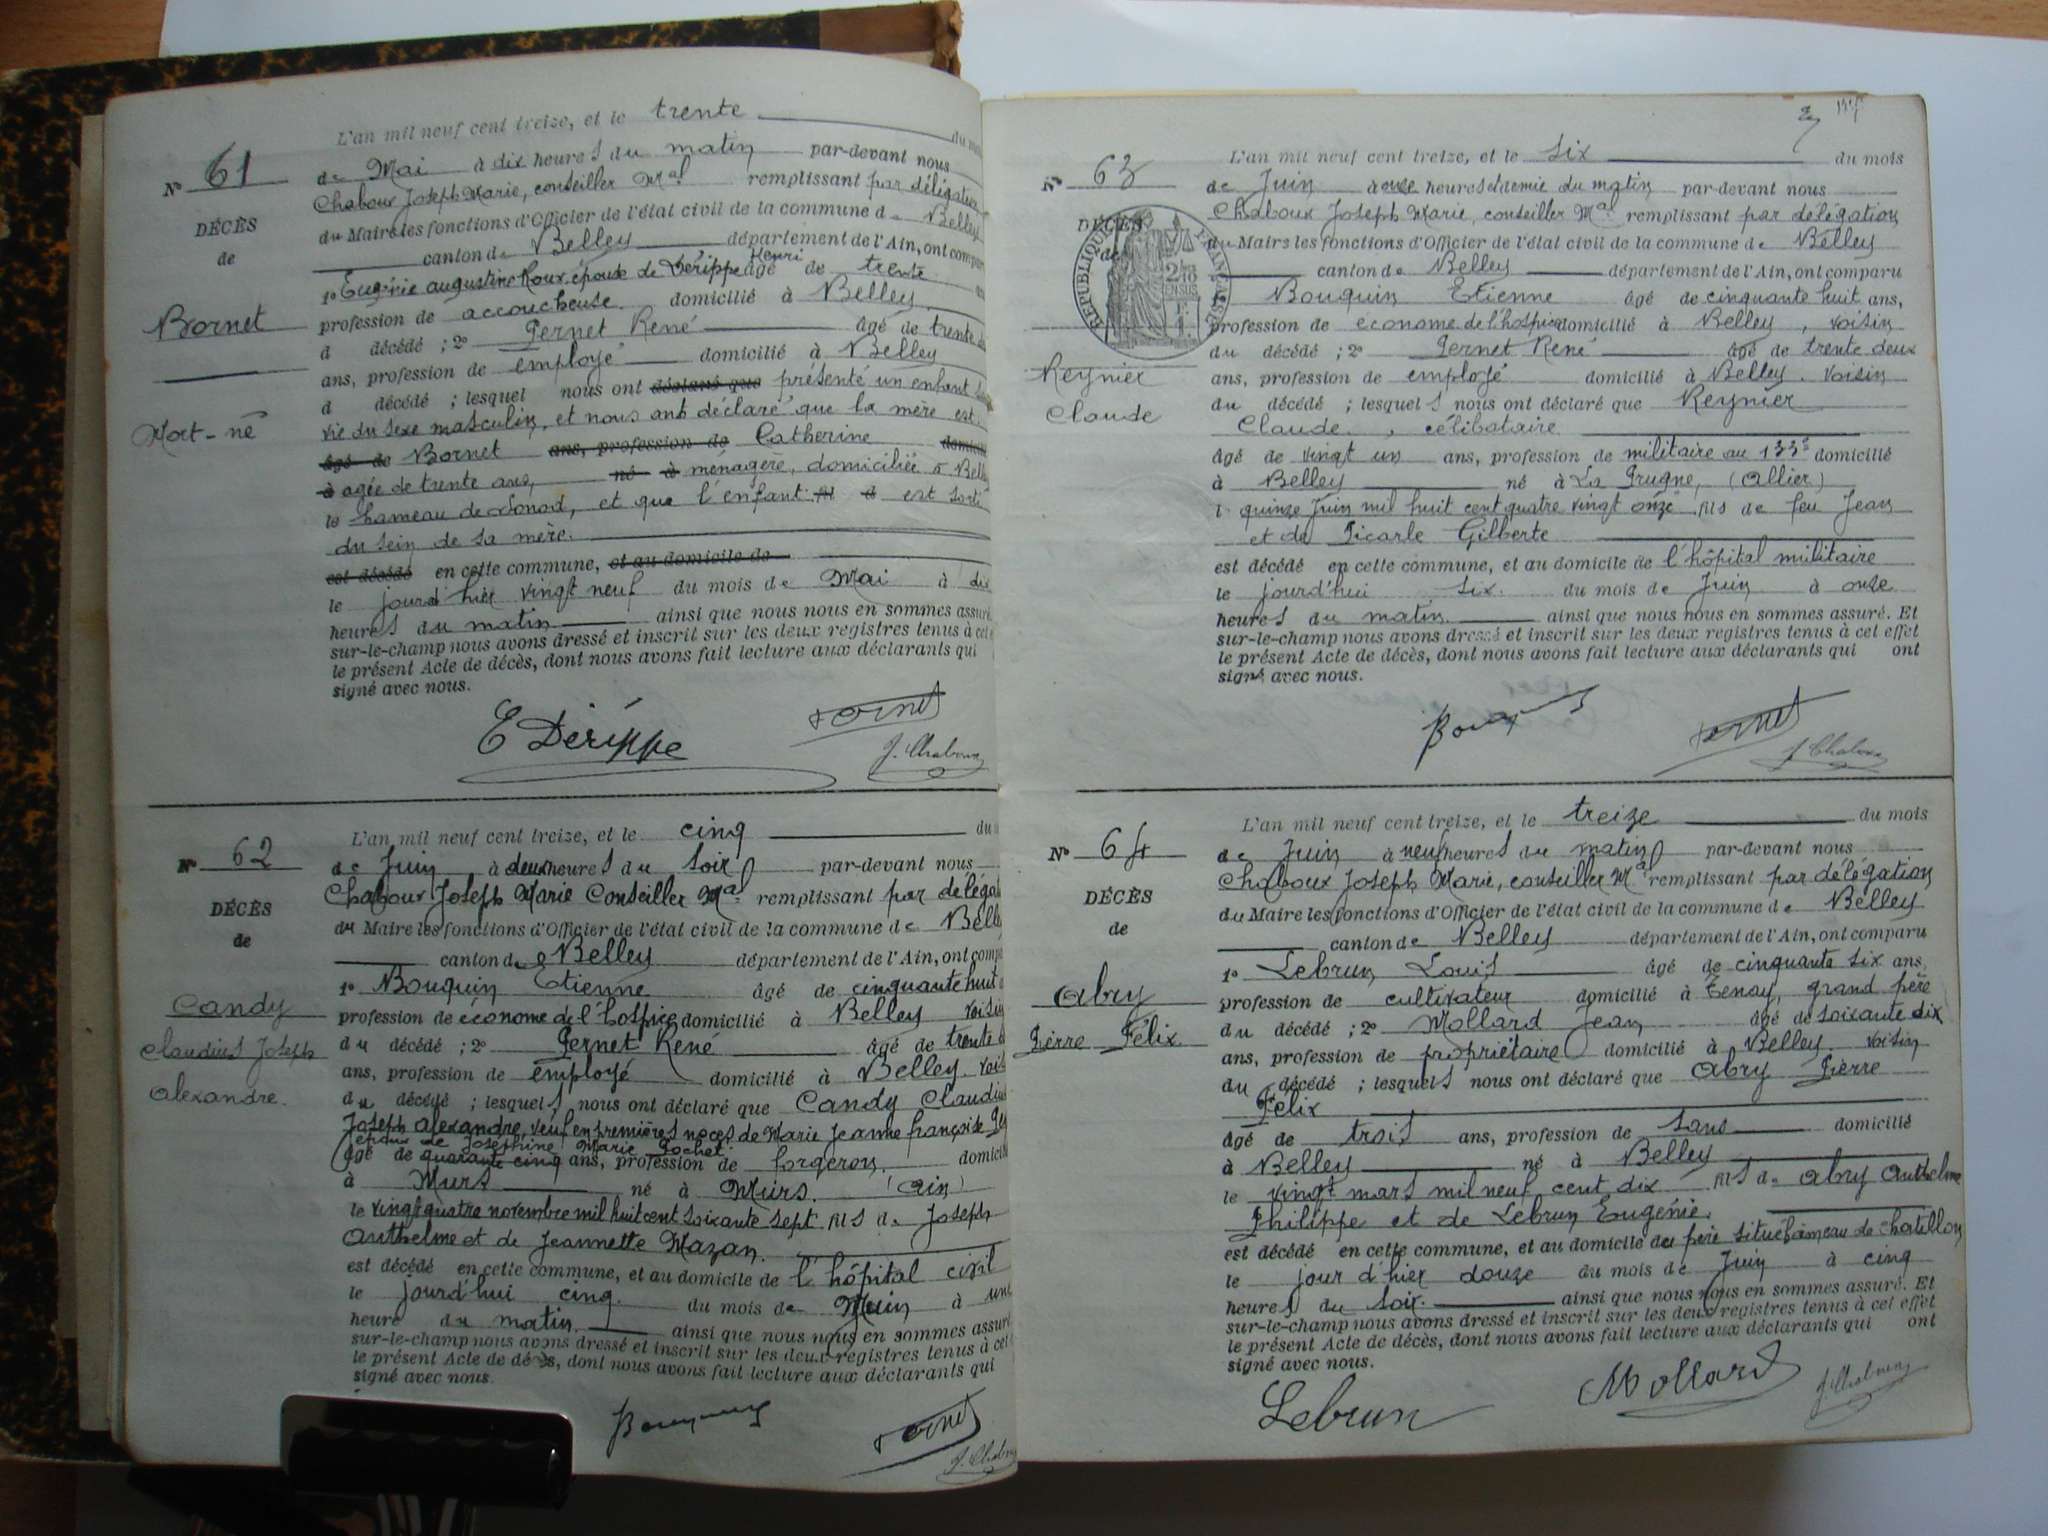 L'an mil neuf cent treize, et le trente du
Nº 61
de Mai à dix heures du matin par-devant nous
Chaboux Joseph Marie, conseiller Mal remplissant par délégation
DÉCÈS
du Maire les fonctions d'Officier de l'état civil de la commune de Belley
de
canton de Belley département de l'Ain, ont compar
1º Eugénie augustine Roux épouse de Dérippe Henri âgé de trente
Bornet
profession de accoucheuse domicilié à Belley
d décédé ; 2º Pernet René âgé de trente
ans, profession de employé domicilié à Belley
d décédé ; lesquel nous ont déclaré que présenté un enfant sans
Mort-né
vie du sexe masculin, et nous ont déclaré que la mère est
âgé de Bornet ans, profession de Catherine domicilié
à agée de trente ans, né à ménagère, domiciliée à Belley
le hameau de , et que l'enfant fil d est sorti
du sein de sa mère.
est décédé en cette commune, et au domicile de
le jour d'hier vingt neuf du mois de Mai à dix
heures du matin ainsi que nous nous en sommes assuré.
sur-le-champ nous avons dressé et inscrit sur les deux registres tenus à cet
le présent Acte de décès, dont nous avons fait lecture aux déclarants qui
signé avec nous.
E Dérippe
Pernet
J. Chaboux
L'an mil neuf cent treize, et le cinq du
Nº 62
de Juin à deux heures du soir par-devant nous
Chaboux Joseph Marie Conseiller Mal remplissant par délégat
DÉCÈS
du Maire les fonctions d'Officier de l'état civil de la commune de Belley
de
canton de Belley département de l'Ain, ont comp
1º Bouquin Etienne âgé de cinquante huit
Candy
profession de économe de l'hospice domicilié à Belley voisin
Claudius Joseph
du décédé ; 2º Pernet René âgé de trente
Alexandre.
ans, profession de employé domicilié à Belley voisin
du décédé ; lesquels nous ont déclaré que Candy Claudius
Joseph Alexandre, veuf en premières noces de Marie Jeanne françoise
époux de Joséphine Marie Pochet
âgé de quarante cinq ans, profession de forgeron. domicilié
à Murs né à Murs. (Ain)
le vingt quatre novembre mil huit cent soixante sept fils de Joseph
Anthelme et de Jeannette Mazan.
est décédé en cette commune, et au domicile de l'hôpital civil
le jourd'hui cinq du mois de Juin à une
heure du matin ainsi que nous nous en sommes assuré
sur-le-champ nous avons dressé et inscrit sur les deux registres tenus à cet
le présent Acte de décès, dont nous avons fait lecture aux déclarants qui
signé avec nous.
Bouquin
Pernet
J. Chaboux
L'an mil neuf cent treize, et le six du mois
Nº 63
de Juin à onze heures et demie du matin par-devant nous
Chaboux Joseph Marie, conseiller Mal remplissant par délégation
DÉCÈS
du Maire les fonctions d'Officier de l'état civil de la commune de Belley
de
canton de Belley département de l'Ain, ont comparu
RÉPUBLIQUE FRANÇAISE
1º Bouquin Etienne âgé de cinquante huit ans,
profession de économe de l'hospice domicilié à Belley, voisin
du décédé ; 2º Pernet René âgé de trente deux
Reynier
ans, profession de employé domicilié à Belley. voisin
Claude
du décédé ; lesquels nous ont déclaré que Reynier
Claude, célibataire
âgé de vingt un ans, profession de militaire au 133e domicilié
à Belley né à La Prugne, (Allier)
l quinze Juin mil huit cent quatre vingt onze fils de feu Jean
et de Picarle Gilberte
est décédé en cette commune, et au domicile de l'hôpital militaire
le jourd'hui six. du mois de Juin à onze
heures du matin. ainsi que nous nous en sommes assuré. Et
sur-le-champ nous avons dressé et inscrit sur les deux registres tenus à cet effet
le présent Acte de décès, dont nous avons fait lecture aux déclarants qui ont
signé avec nous.
Bouquin
Pernet
J. Chaboux
L'an mil neuf cent treize, et le treize du mois
Nº 64
de Juin à neuf heures du matin par-devant nous
Chaboux Joseph Marie, conseiller Mal remplissant par délégation
DÉCÈS
du Maire les fonctions d'Officier de l'état civil de la commune de Belley
de
canton de Belley département de l'Ain, ont comparu
1º Lebrun Louis âgé de cinquante six ans,
Abry
profession de cultivateur domicilié à Tenay, grand père
Pierre Félix
du décédé ; 2º Mollard Jean âgé de soixante dix
ans, profession de propriétaire domicilié à Belley voisin
du décédé ; lesquels nous ont déclaré que Abry Pierre
Félix
âgé de trois ans, profession de sans domicilié
à Belley né à Belley
le vingt mars mil neuf cent dix fils de Abry Anthelme
Philippe et de Lebrun Eugénie.
est décédé en cette commune, et au domicile du père situé hameau de Chatillon
le jour d'hier douze du mois de Juin à cinq
heures du soir. ainsi que nous nous en sommes assuré. Et
sur-le-champ nous avons dressé et inscrit sur les deux registres tenus à cet effet
le présent Acte de décès, dont nous avons fait lecture aux déclarants qui ont
signé avec nous.
Lebrun
Mollard
J. Chaboux